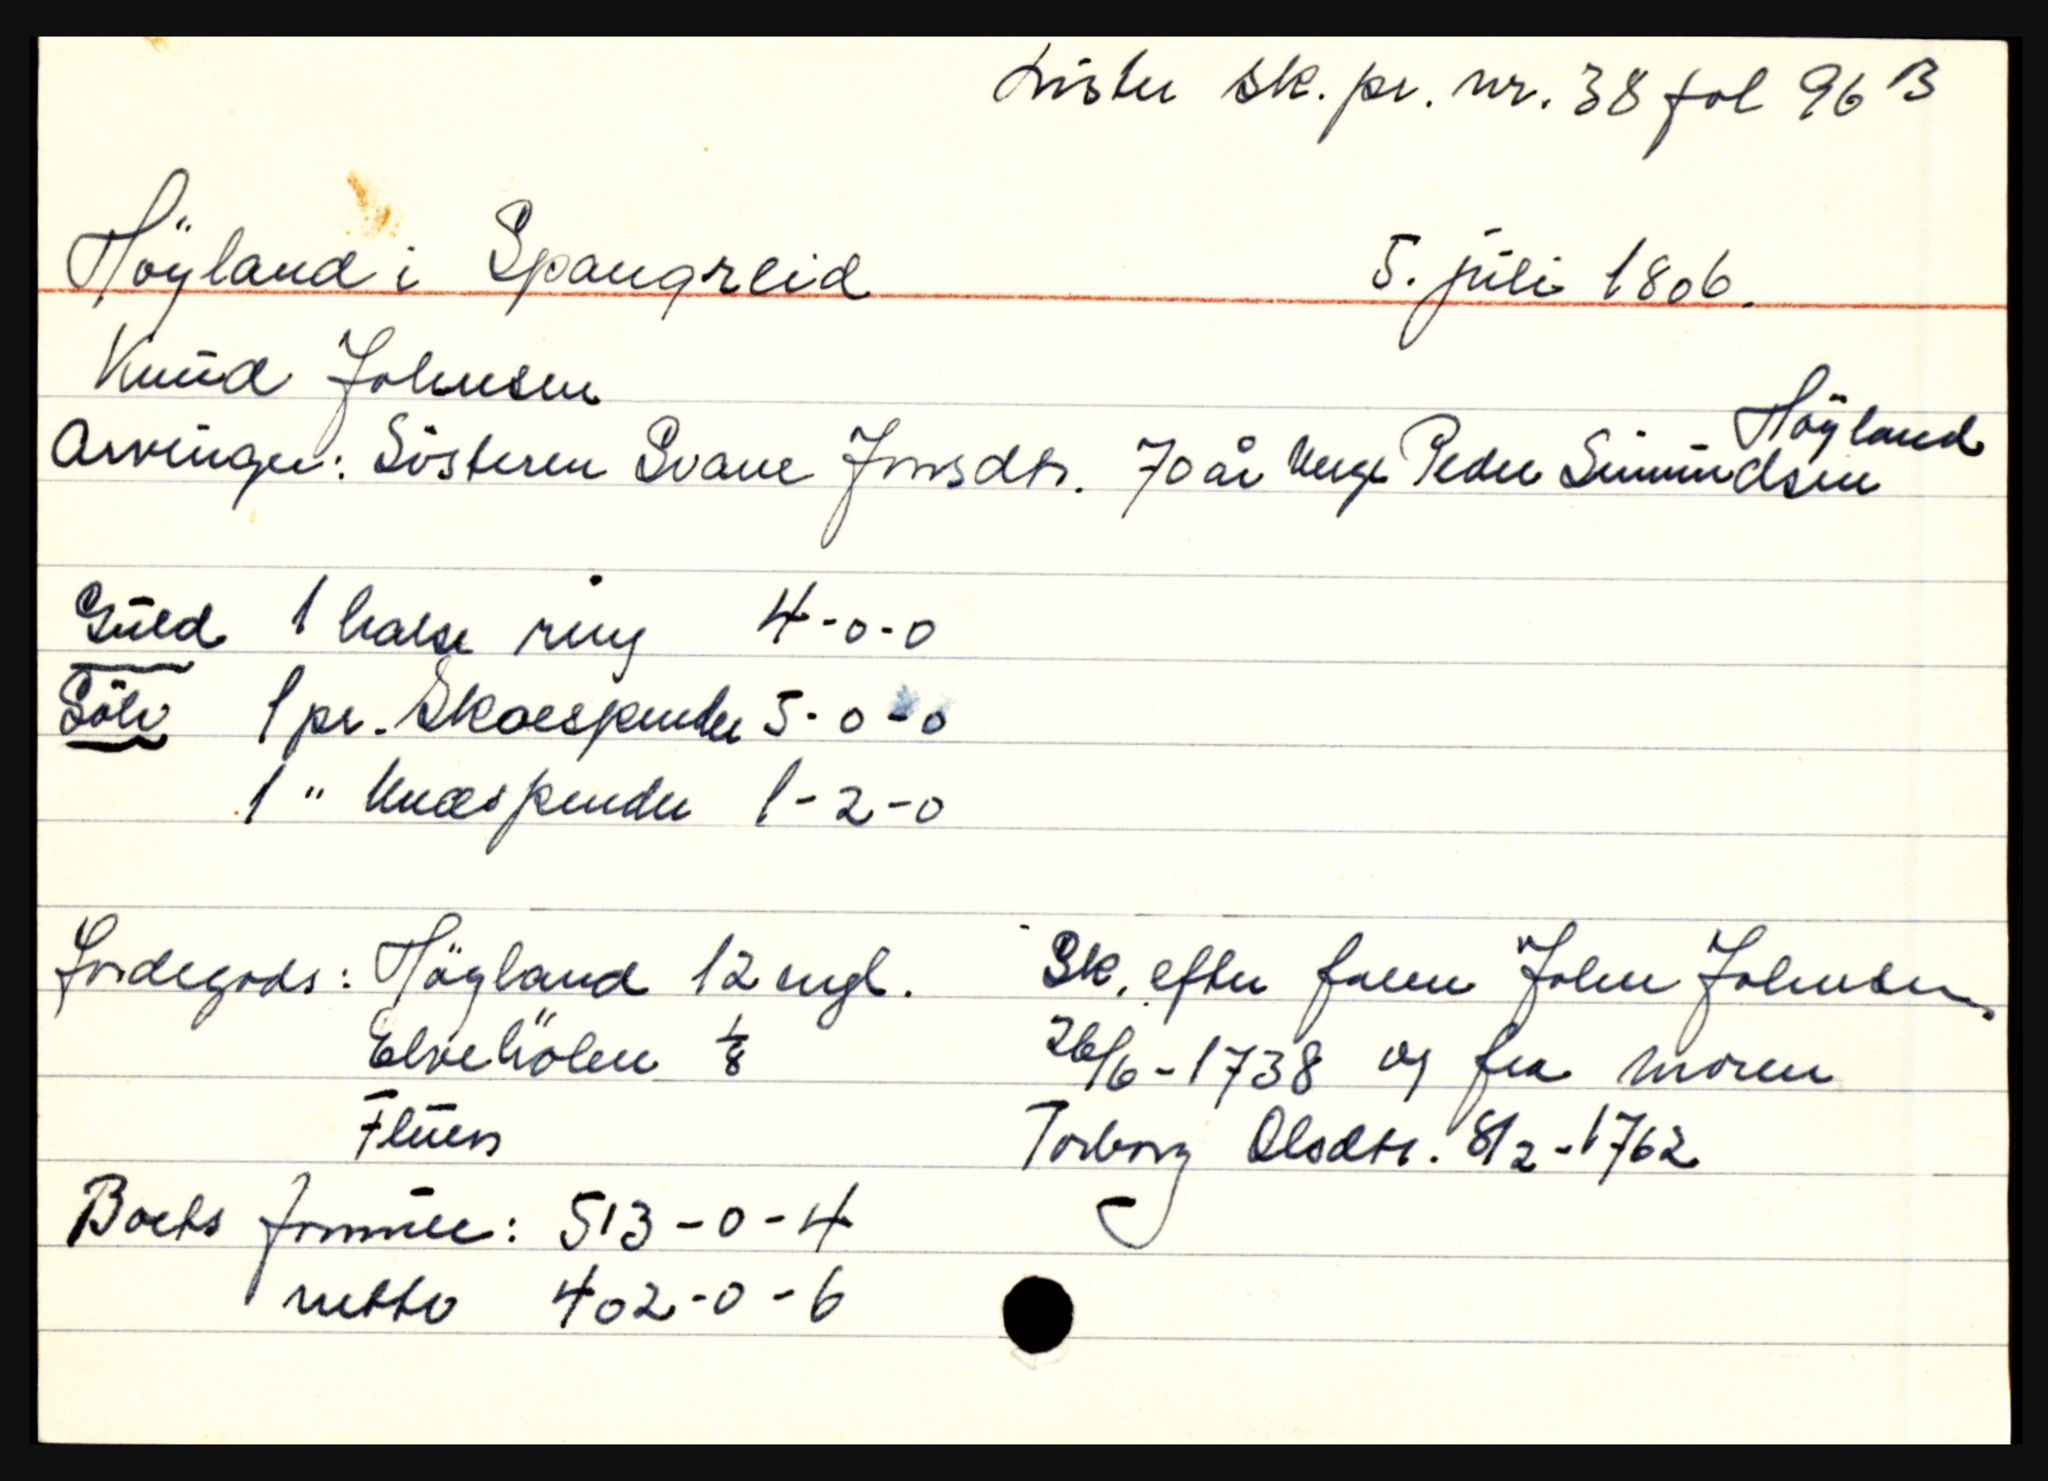 Lister sk. pr. nr. 38 fol 96 B
Höyland i Spangreid 5. juli 1806.
Knud Johnsen
Arvinger: Sösteren Svane Jonsdtr. 70 år Verge Peder Simundsen Höyland
Guld 1 halse ring 4-0-0
Sölv 1 pr. Skoespender 5-0-0
1 " Knæspender 1-2-0
Jordegods: Höyland 12 engl. Sk. efter faren John Johnsen
Elvehölen 1/8 26/6-1738 og fra moren
Fluen Torborg Olsdtr. 8/2-1762
Boets formue: 513-0-4
netto 402-0-6